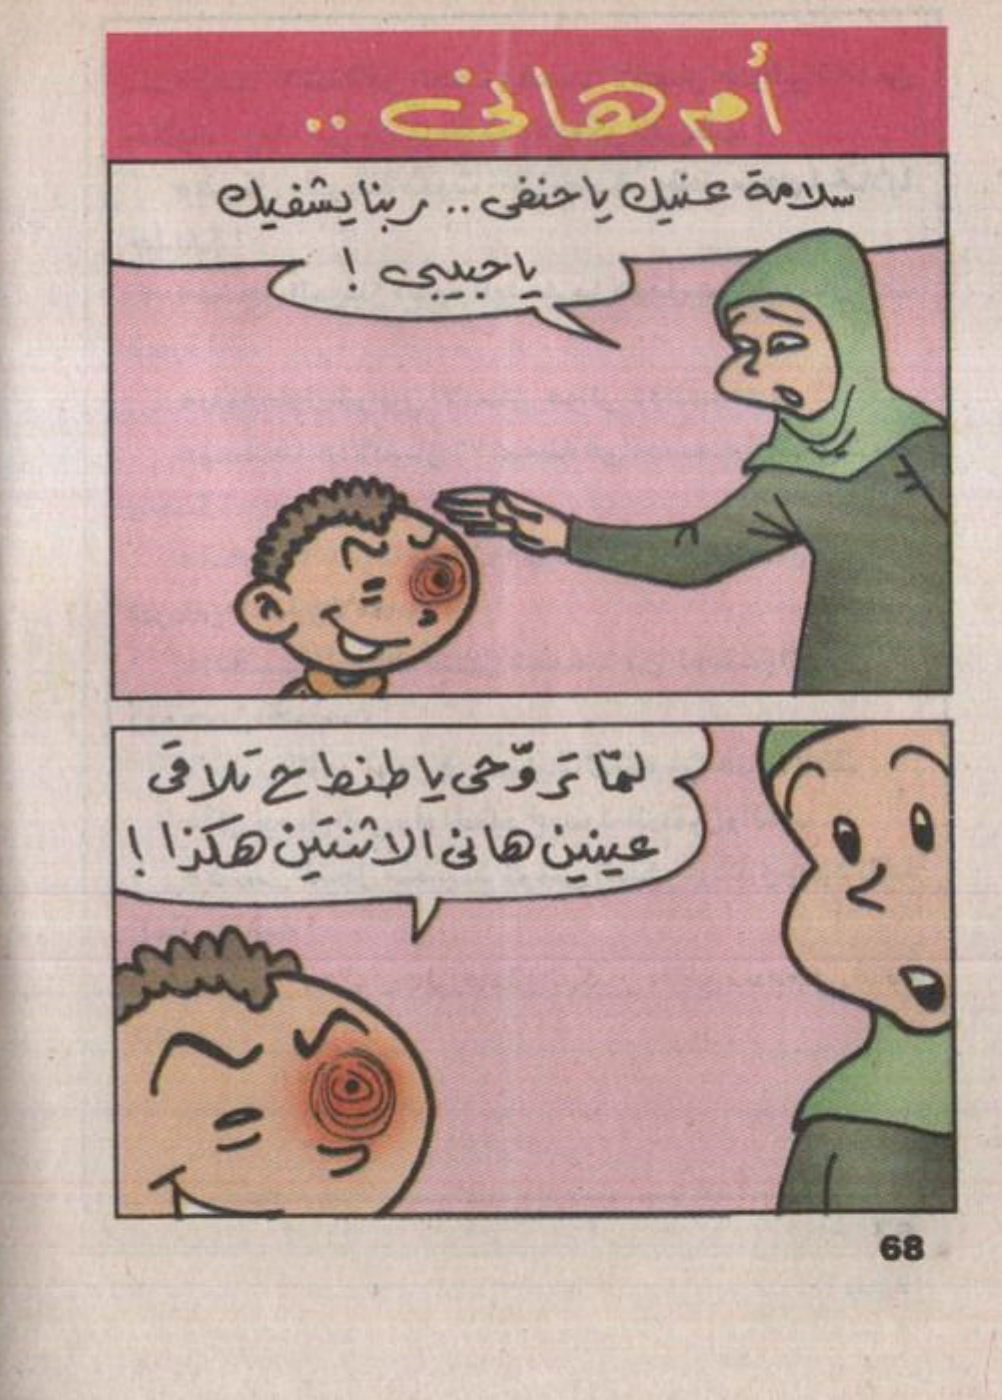 أم هانى ..
سلامة عنيك يا حنفى .. ربنا يشفيك
يا حبيبى !
لمّا تروّحى يا طنط ح تلاقى
عينين هانى الاثنتين هكذا !
68